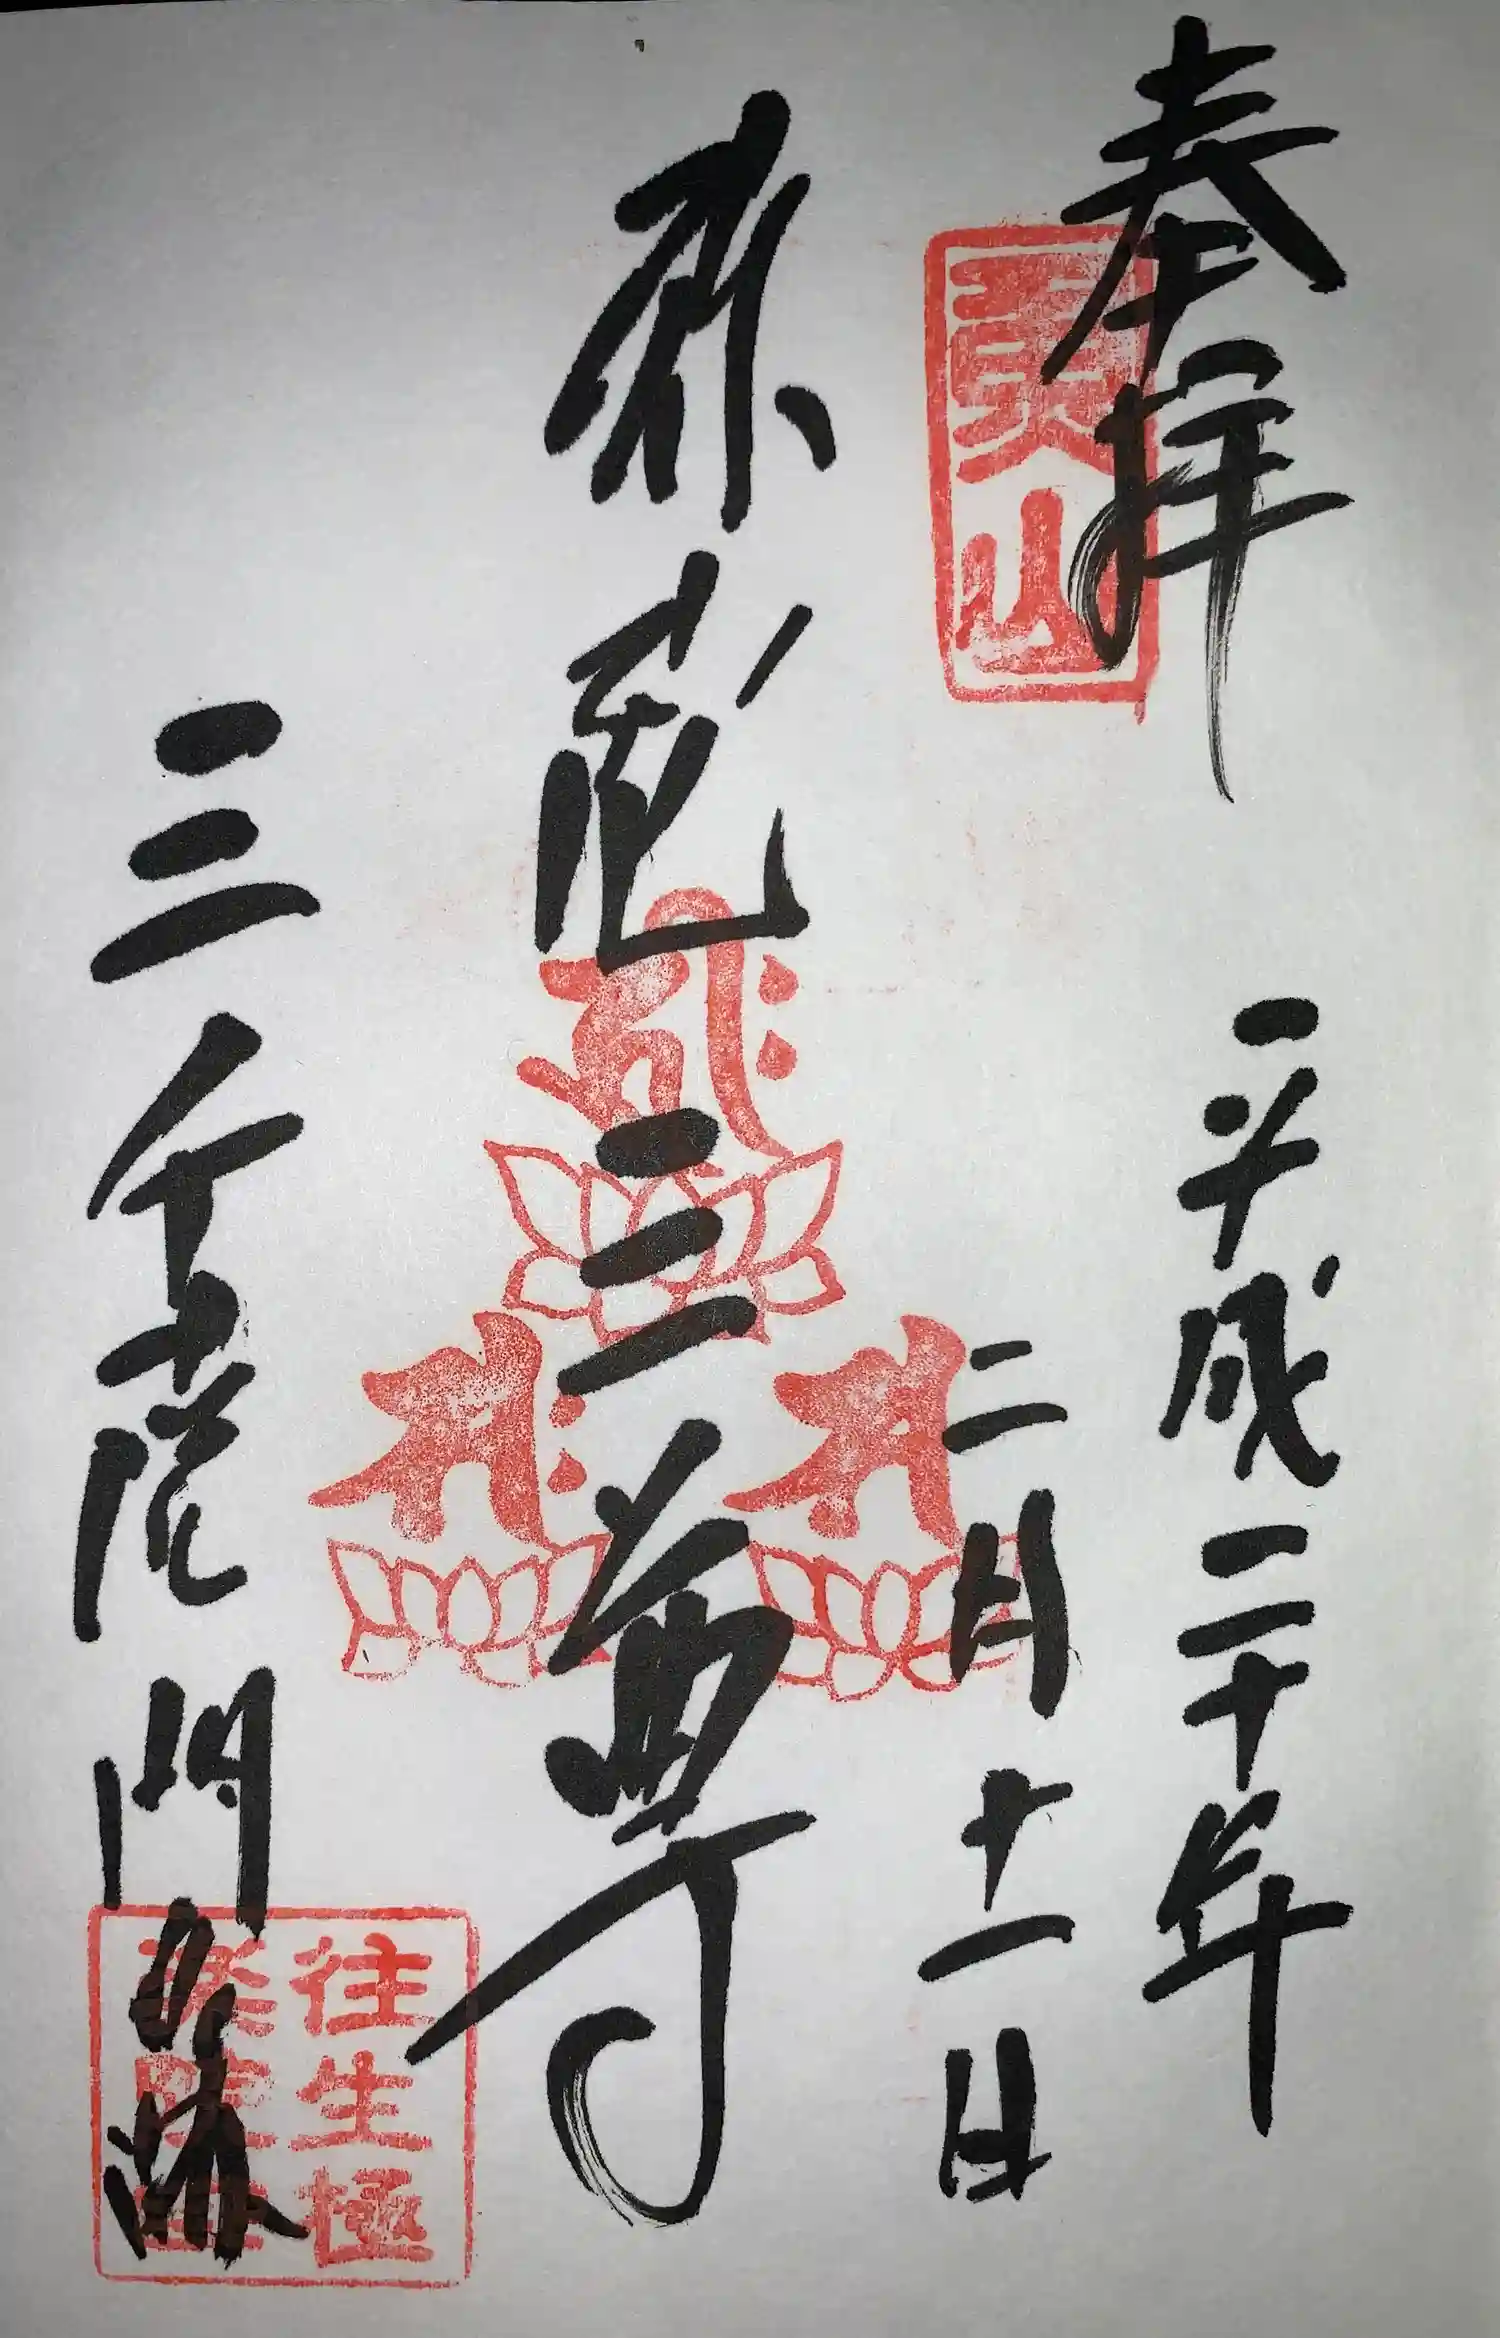 奉拝
魚山
平成二十年
二月十一日
弥陀三尊
三千院門跡
往生極
楽院